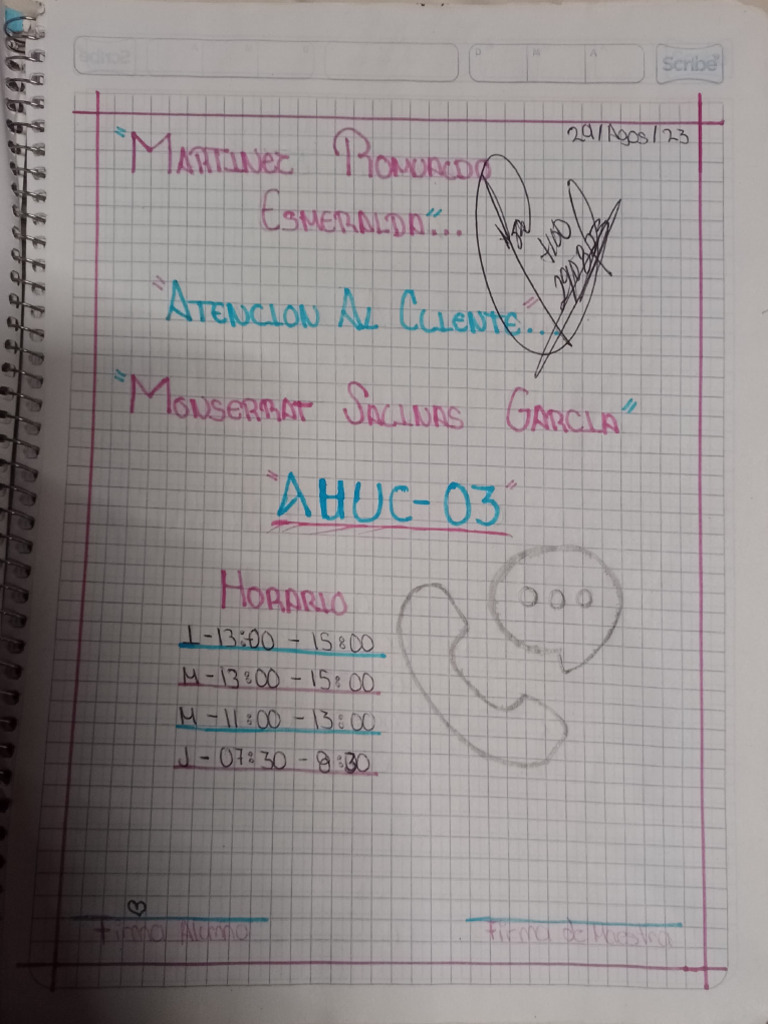 Scribe
D M A
29/Agos/23
"MARTINEZ ROMUALDO
ESMERALDA"...
"ATENCION AL CLIENTE"...
"MONSERRAT SALINAS GARCIA"
"AHUC-03"
HORARIO
L-13:00 - 15:00
M-13:00 - 15:00
M-11:00 - 13:00
J-07:30 - 8:30
Firma Alumno
Firma de Maestra